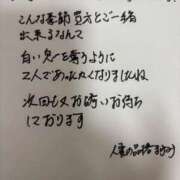 こんな素敵な貴方とご一緒
出来るなんて
白い兎を奪うように
2人であったかくなりましたね
次回もお誘いお待ち
しております
人妻の品格